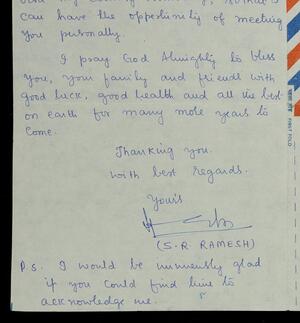 can have the opportunity of meeting
you personally.
I pray God Almighty to bless
you, your family and friends with
good luck, good health and all the best
on earth for many more years to
come.
Thanking you.
with best regards.
Yours
(S.R. RAMESH)
P.S. I would be immensely glad
if you could find time to
acknowledge me.
FIRST FOLD